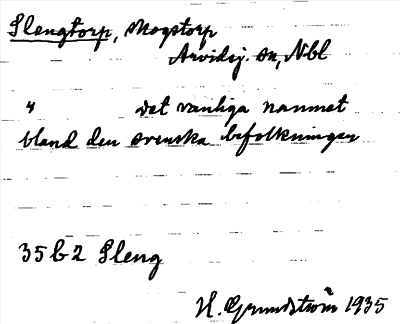 Slengtorp, skogstorp
Arvidsj. sn, Nbl
" det vanliga namnet
bland den svenska befolkningen
35 b 2 Sleng
H. Grundström 1935